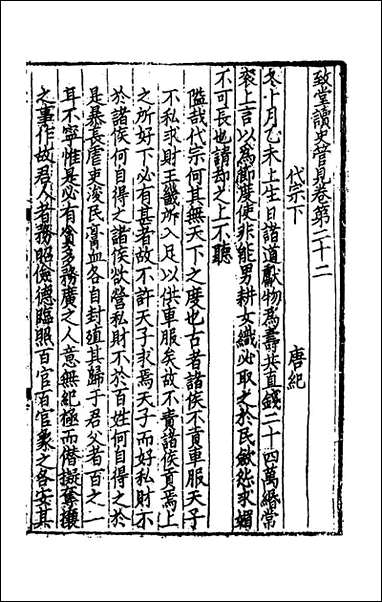 致堂讀史管見卷第二十二
代宗下　唐紀
冬十月乙未上生日諸道獻物爲壽共直錢二十四萬緡常
衮上言以爲節度使非能男耕女織必取之於民斂怨求媚
不可長也請却之上不聽
隘哉代宗何其無天下之度也古者諸侯不貢車服天子
不私求財王畿所入足以供車服矣故不責諸侯貢焉上
之所好下必有甚者故不許天子求焉天子而好私財不
於諸侯何自得之諸侯欲營私財不於百姓何自得之於
是暴長虐吏浚民膏血各自封殖其歸于君父者百之一
耳不寧惟是必有貪多務廣之人意無紀極而僭擬奪攘
之事作故君人者務昭儉德臨照百官百官象之各安其